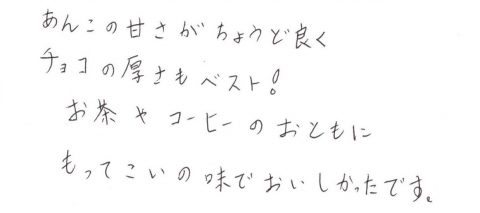 あんこの甘さがちょうど良く
チョコの厚さもベスト!
お茶やコーヒーのおともに
もってこいの味でおいしかったです。